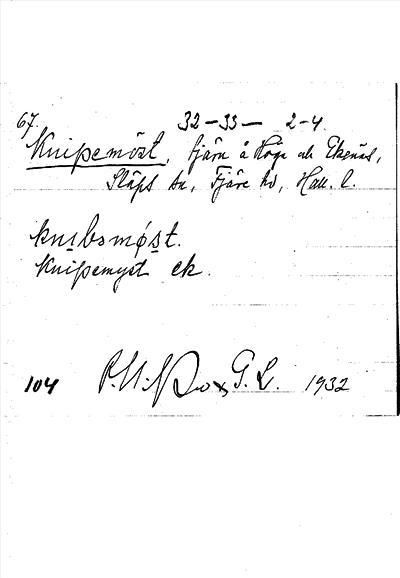 67. 32-33- 2-4.
Knipemöst, fjärn å Höge och Ekenäs,
Släps sn, Fjäre hd, Hall. l.
knıbsmøst.
Knipemyst ek.
104 G. L. 1932